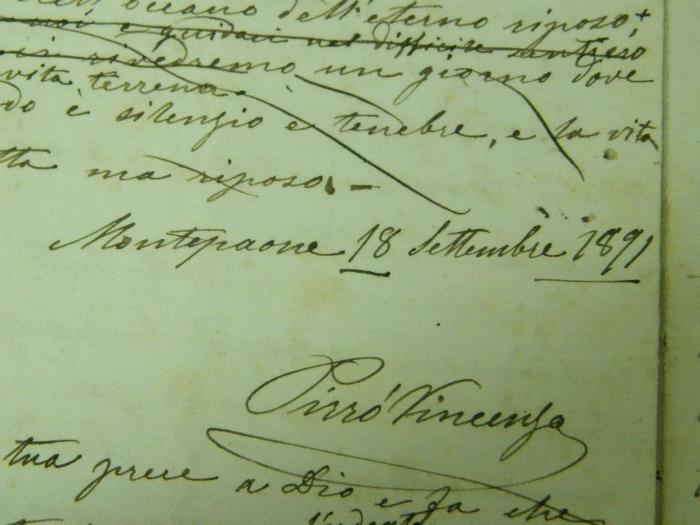 oceano dell'eterno riposo,+
noi e guidaci nel difficile
rivedremo un giorno dove
vita terrena.
è silenzio è tenebre, e la vita
ma riposo. -
Montepaone 18 Settembre 1891
Pirró Vincenza
tua prece a Dio e fa che